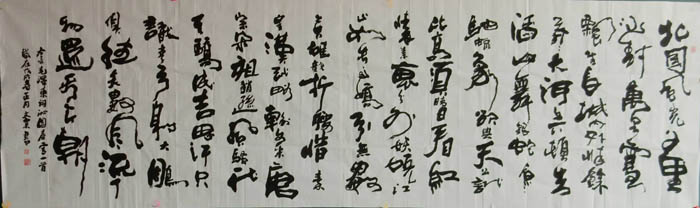 北国风光千里
冰封万里雪
飘望长城内外惟馀
莽莽大河上下顿失
滔滔山舞银蛇原
驰蜡象欲与天公试
比高须晴日看红
装素裹分外妖娆江
山如此多娇引无数
英雄竞折腰惜秦
皇汉武略输文采唐
宗宋祖稍逊风骚一代
天骄成吉思汗只
识弯弓射大雕
俱往矣数风流人
物还看今朝
毛泽东词沁园春雪一首